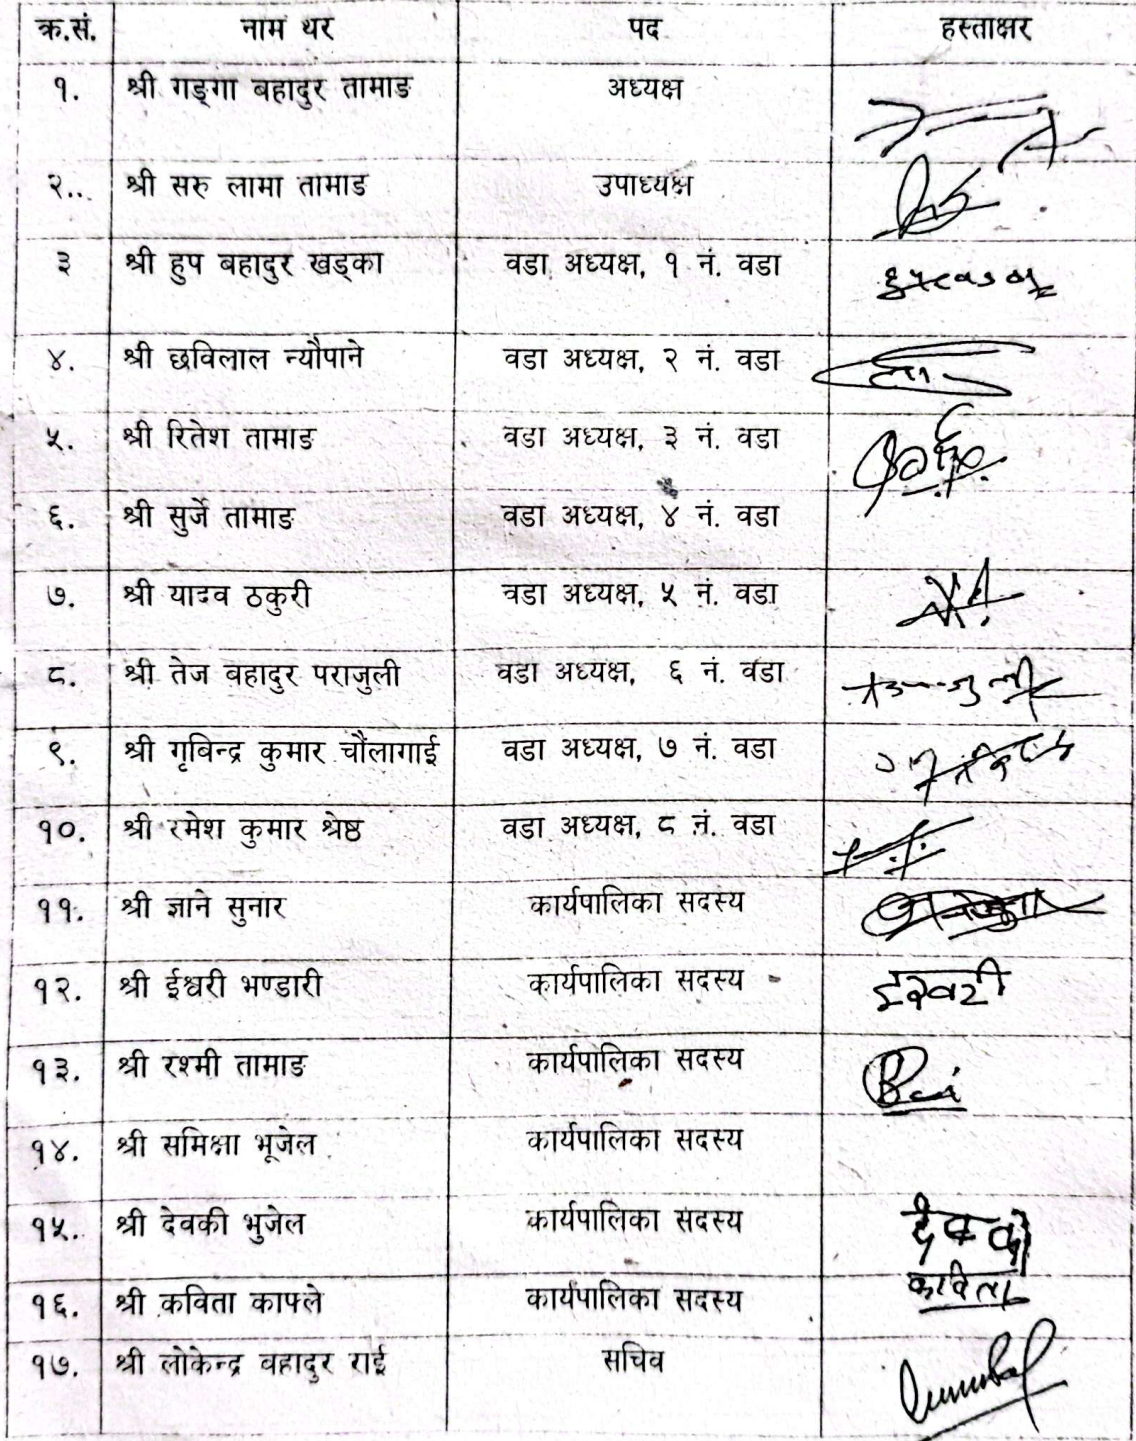 क्र.सं. नाम थर पद हस्ताक्षर
१. श्री गङ्गा बहादुर तामाङ अध्यक्ष
२.. श्री सरु लामा तामाङ उपाध्यक्ष
३ श्री हुप बहादुर खड्का वडा अध्यक्ष, १ नं. वडा
४. श्री छविलाल न्यौपाने वडा अध्यक्ष, २ नं. वडा
५. श्री रितेश तामाङ वडा अध्यक्ष, ३ नं. वडा
६. श्री सुर्जे तामाङ वडा अध्यक्ष, ४ नं. वडा
७. श्री यादव ठकुरी वडा अध्यक्ष, ५ नं. वडा
८. श्री तेज बहादुर पराजुली वडा अध्यक्ष, ६ नं. वडा
९. श्री गृबिन्द्र कुमार चौंलागाई वडा अध्यक्ष, ७ नं. वडा
१०. श्री रमेश कुमार श्रेष्ठ वडा अध्यक्ष, ८ नं. वडा
११. श्री ज्ञाने सुनार कार्यपालिका सदस्य
१२. श्री ईश्वरी भण्डारी कार्यपालिका सदस्य ईश्वरी
१३. श्री रश्मी तामाङ कार्यपालिका सदस्य
१४. श्री समिक्षा भूजेल कार्यपालिका सदस्य
१५. श्री देवकी भुजेल कार्यपालिका सदस्य देवकी
१६. श्री कविता काफ्ले कार्यपालिका सदस्य कविता
१७. श्री लोकेन्द्र बहादुर राई सचिव